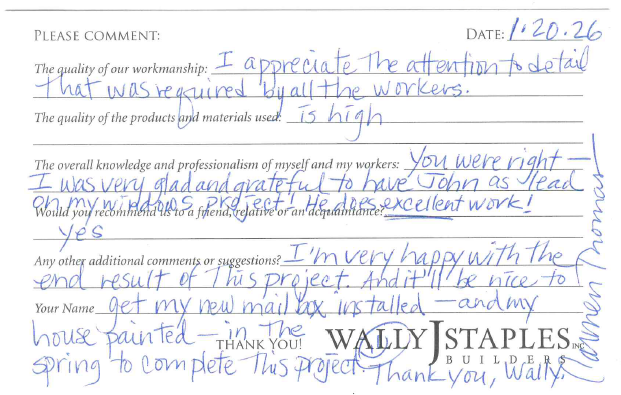 PLEASE COMMENT: DATE: 1.20.26
The quality of our workmanship: I appreciate the attention to detail
that was required by all the workers.
The quality of the products and materials used: is high
The overall knowledge and professionalism of myself and my workers: You were right —
I was very glad and grateful to have John as lead
on my windows project! He does excellent work!
Would you recommend us to a friend, relative or an acquaintance?
yes
Any other additional comments or suggestions? I'm very happy with the
end result of this project. And it'll be nice to
Your Name get my new mail box installed — and my
house painted — in the
THANK YOU! WALLY J STAPLES INC
BUILDERS
spring to complete this project. Thank you, Wally.
Thomas